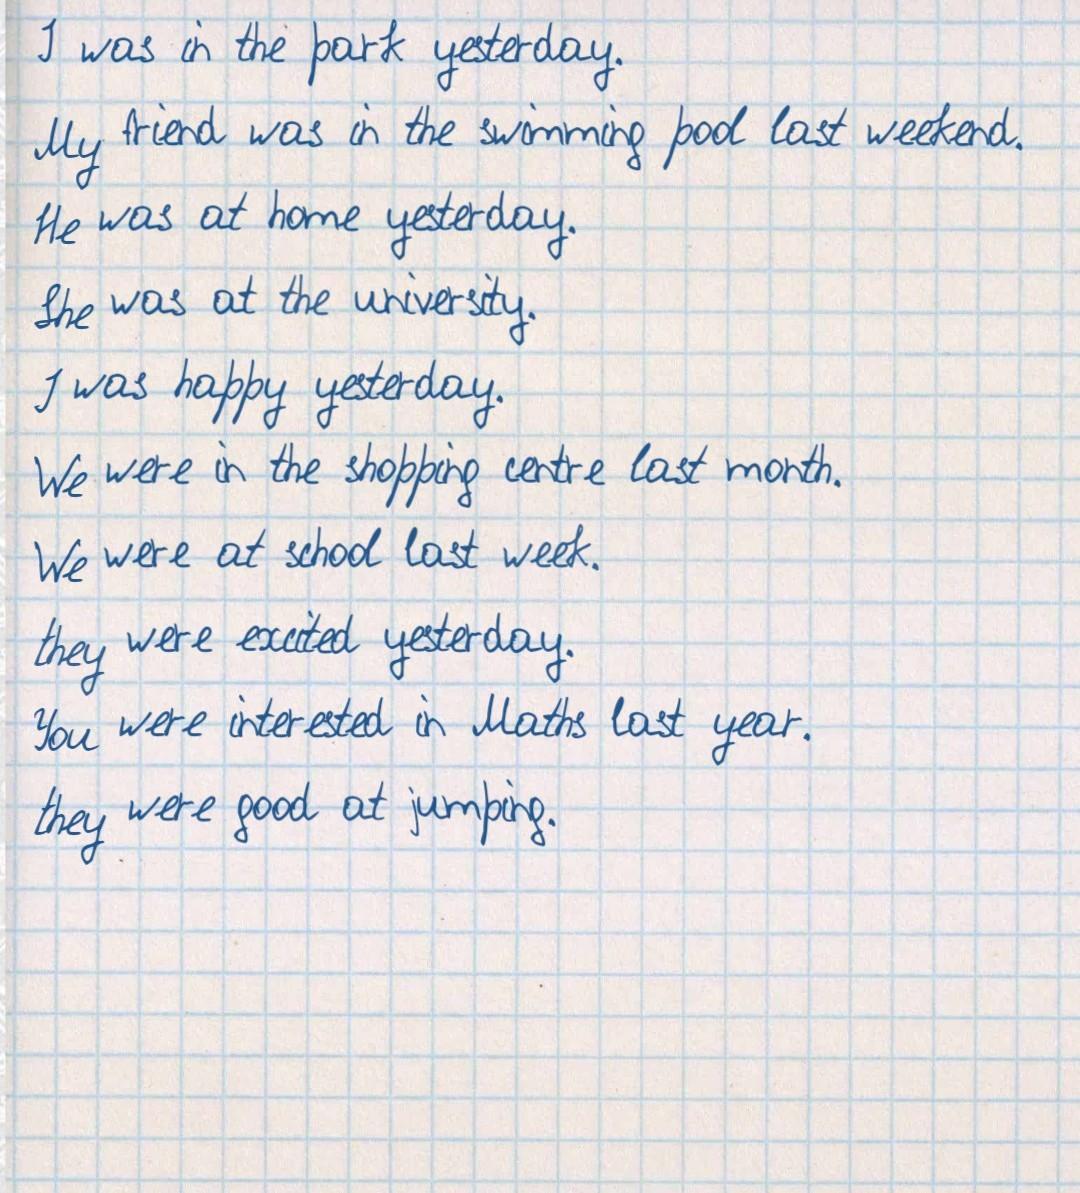 I was in the park yesterday.
My friend was in the swimming pool last weekend.
He was at home yesterday.
She was at the university.
I was happy yesterday.
We were in the shopping centre last month.
We were at school last week.
they were excited yesterday.
You were interested in Maths last year.
they were good at jumping.